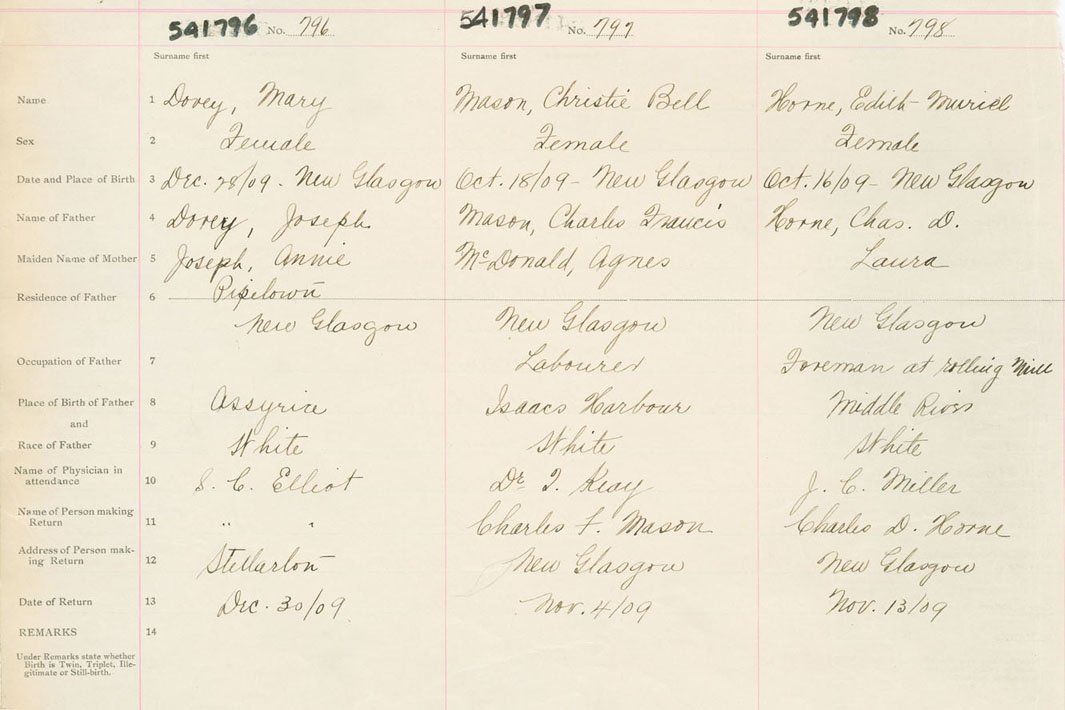 541796 No. 796 541797 No. 797 541798 No. 798
Surname first Surname first Surname first
Name 1 Dovey, Mary Mason, Christie Bell Horne, Edith Muriel
Sex 2 Female Female Female
Date and Place of Birth 3 Dec. 28/09 - New Glasgow Oct. 18/09 - New Glasgow Oct. 16/09 - New Glasgow
Name of Father 4 Dovey, Joseph Mason, Charles Francis Horne, Chas. D.
Maiden Name of Mother 5 Joseph, Annie McDonald, Agnes Laura
Residence of Father 6 Pipetown
New Glasgow New Glasgow New Glasgow
Occupation of Father 7 Labourer Foreman at rolling Mill
Place of Birth of Father 8 Assyria Isaacs Harbour Middle River
and
Race of Father 9 White White White
Name of Physician in
attendance 10 S. C. Elliot Dr. T. Keay J. C. Miller
Name of Person making
Return 11 " " Charles F. Mason Charles D. Horne
Address of Person mak-
ing Return 12 Stellarton New Glasgow New Glasgow
Date of Return 13 Dec. 30/09 Nov. 4/09 Nov. 13/09
REMARKS 14
Under Remarks state whether
Birth is Twin, Triplet, Ille-
gitimate or Still-birth.